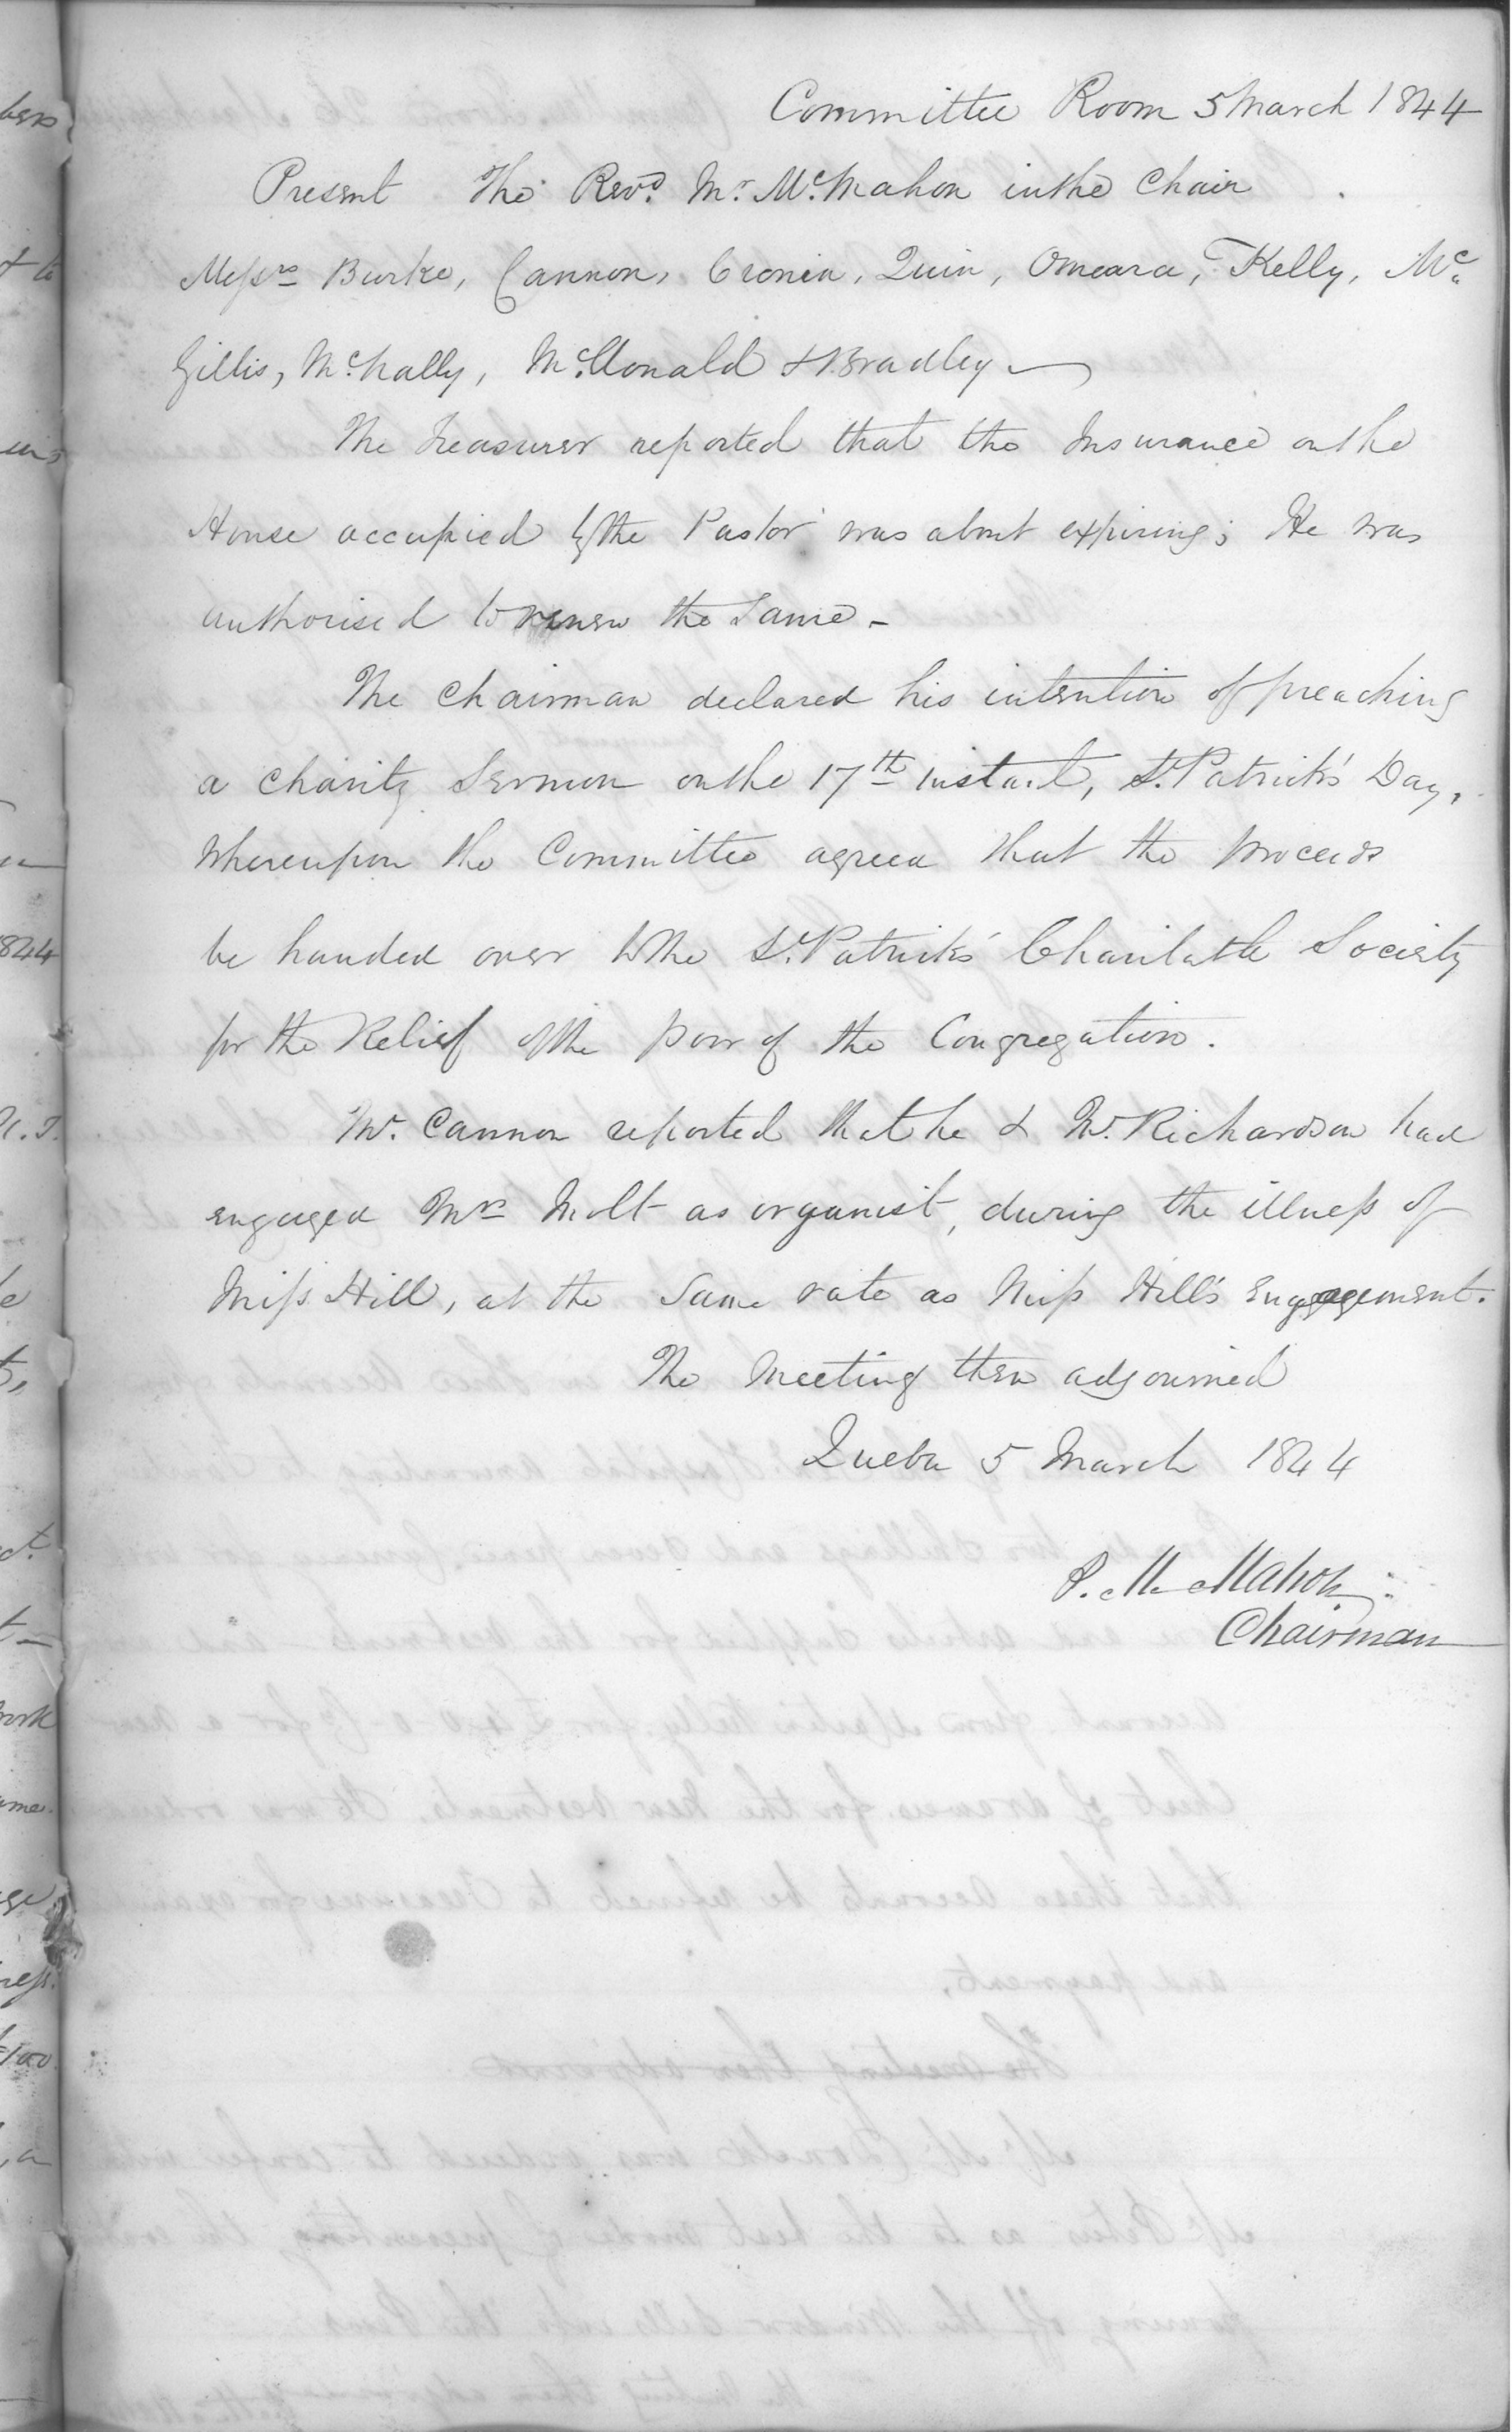 Committee Room 5 March 1844
Present The Revd. Mr. McMahon in the Chair
Messrs Burke, Cannon, Cronin, Quin, Omeara, Kelly, Mc
Gillis, McNally, McDonald & Bradley
The Treasurer reported that the Insurance on the
House occupied by the Pastor was about expiring; He was
authorised to renew the Same -
The Chairman declared his intention of preaching
a Charity Sermon on the 17th Instant, St. Patrick's Day,
Whereupon the Committee agreed that the proceeds
be handed over to the St. Patrick's Charitable Society
for the Relief of the poor of the Congregation.
Mr. Cannon reported that he & Mr. Richardson had
engaged Mrs Molt as organist, during the illness of
Miss Hill, at the Same rate as Miss Hill's Engagement.
The Meeting then adjourned
Quebec 5 March 1844
P. McMahon
Chairman